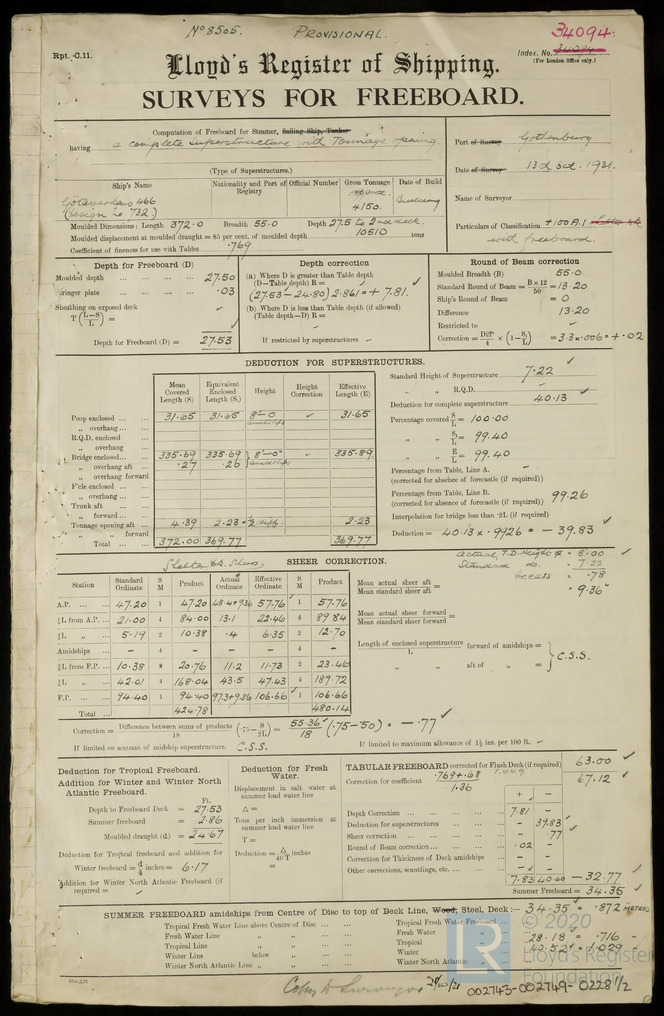 No 8505. PROVISIONAL. 34094.
Rpt. C.11. Index. No. 34094
(For London Office only.)
Lloyd's Register of Shipping.
SURVEYS FOR FREEBOARD.
Computation of Freeboard for Steamer, Sailing Ship, Tanker
having a complete superstructure with Tonnage opening.
(Type of Superstructures.)
Port of Survey Gothenburg
Date of Survey 13th Oct. 1931.
Name of Surveyor
Particulars of Classification +100A.1
with freeboard.
Ship's Name Nationality and Port of Registry Official Number Gross Tonnage Date of Build
Götaverken 466 approx. Building
(design No 732) 4150.
Moulded Dimensions: Length 372.0 Breadth 55.0 Depth 27.5 to 2nd deck.
Moulded displacement at moulded draught = 85 per cent. of moulded depth 10510 tons
Coefficient of fineness for use with Tables .769
Depth for Freeboard (D)
Moulded depth 27.50
Stringer plate .03
Sheathing on exposed deck
T (L−S/L) =
Depth for Freeboard (D) = 27.53
Depth correction
(a) Where D is greater than Table depth
(D−Table depth) R =
(27.53 − 24.80) 2.861 = + 7.81.
(b) Where D is less than Table depth (if allowed)
(Table depth−D) R =
If restricted by superstructures
Round of Beam correction
Moulded Breadth (B) 55.0
Standard Round of Beam = B×12/50 = 13.20
Ship's Round of Beam = 0
Difference 13.20
Restricted to
Correction = Diffce/4 × (1−S1/L) = 3.3 × .006 = + .02
DEDUCTION FOR SUPERSTRUCTURES.
Mean Covered Length (S) Equivalent Enclosed Length (S1) Height Height Correction Effective Length (E)
Poop enclosed 31.65 31.65 8'-0 31.65
amidships
„ overhang
R.Q.D. enclosed
„ overhang
Bridge enclosed 335.69 335.69 8'-0" 335.89
„ overhang aft .27 .26 amidships
„ overhang forward
F'cle enclosed
„ overhang
Trunk aft
„ forward
Tonnage opening aft 4.39 2.23 ½ diff. 2.23
„ „ forward
Total 372.00 369.77 369.77
Standard Height of Superstructure 7.22
„ „ R.Q.D.
Deduction for complete superstructure 40.13
Percentage covered S/L = 100.00
„ „ S1/L = 99.40
„ „ E/L = 99.40
Percentage from Table, Line A.
(corrected for absence of forecastle (if required))
Percentage from Table, Line B. 99.26
(corrected for absence of forecastle (if required))
Interpolation for bridge less than ·2L (if required)
Deduction = 40.13 × .9926 = − 39.83
SHEER CORRECTION.
Station Standard Ordinate S M Product Actual Ordinate Effective Ordinate S M Product
A.P. 47.20 1 47.20 48.4+9.36 57.76 1 57.76
⅙L from A.P. 21.00 4 84.00 13.1 22.46 4 89.84
⅓L „ 5.19 2 10.38 .4 6.35 2 12.70
Amidships − 4 − − − 4 −
⅓L from F.P. 10.38 2 20.76 11.2 11.73 2 23.46
⅙L „ 42.01 4 168.04 43.5 47.43 4 189.72
F.P. 94.40 1 94.40 97.3+9.36 106.66 1 106.66
Total 424.78 480.14
Actual T.D. Height = 8.00
Standard do. = 7.22
Excess = .78
= 9.36"
Mean actual sheer aft
Mean standard sheer aft =
Mean actual sheer forward
Mean standard sheer forward =
Length of enclosed superstructure / L forward of amidships =
„ aft of „ =
C.S.S.
Correction = Difference between sums of products / 18 (·75−S/2L) = 55.36/18 (.75−.50) = − .77
If limited on account of midship superstructure. C.S.S. If limited to maximum allowance of 1½ ins. per 100 ft.
Deduction for Tropical Freeboard.
Addition for Winter and Winter North Atlantic Freeboard.
Ft.
Depth to Freeboard Deck = 27.53
Summer freeboard = 2.86
Moulded draught (d) = 24.67
Deduction for Tropical freeboard and addition for
Winter freeboard = d/4 inches = 6.17
Addition for Winter North Atlantic Freeboard (if required) =
Deduction for Fresh Water.
Displacement in salt water at summer load water line
Δ =
Tons per inch immersion at summer load water line
T =
Deduction = Δ/40T inches
=
TABULAR FREEBOARD corrected for Flush Deck (if required) 63.00
Correction for coefficient .769+.68 / 1.36 67.12
+ −
Depth Correction 7.81 −
Deduction for superstructures − 39.83
Sheer correction − .77
Round of Beam correction .02 −
Correction for Thickness of Deck amidships
Other corrections, scantlings, etc.
7.83 40.60 − 32.77
Summer Freeboard = 34.35
SUMMER FREEBOARD amidships from Centre of Disc to top of Deck Line, Wood, Steel, Deck: − 34.35 = .872 METRES
Tropical Fresh Water Line above Centre of Disc Tropical Fresh Water Freeboard
Fresh Water Line „ „ Fresh Water „
Tropical Line „ „ Tropical „ 28.18 = .716
Winter Line below „ Winter „ 40.52 = 1.029
Winter North Atlantic Line „ „ Winter North Atlantic „
LR © 2020
Lloyd's Register
Foundation
Copy to Surveyor
002743-002749-0228 1/2